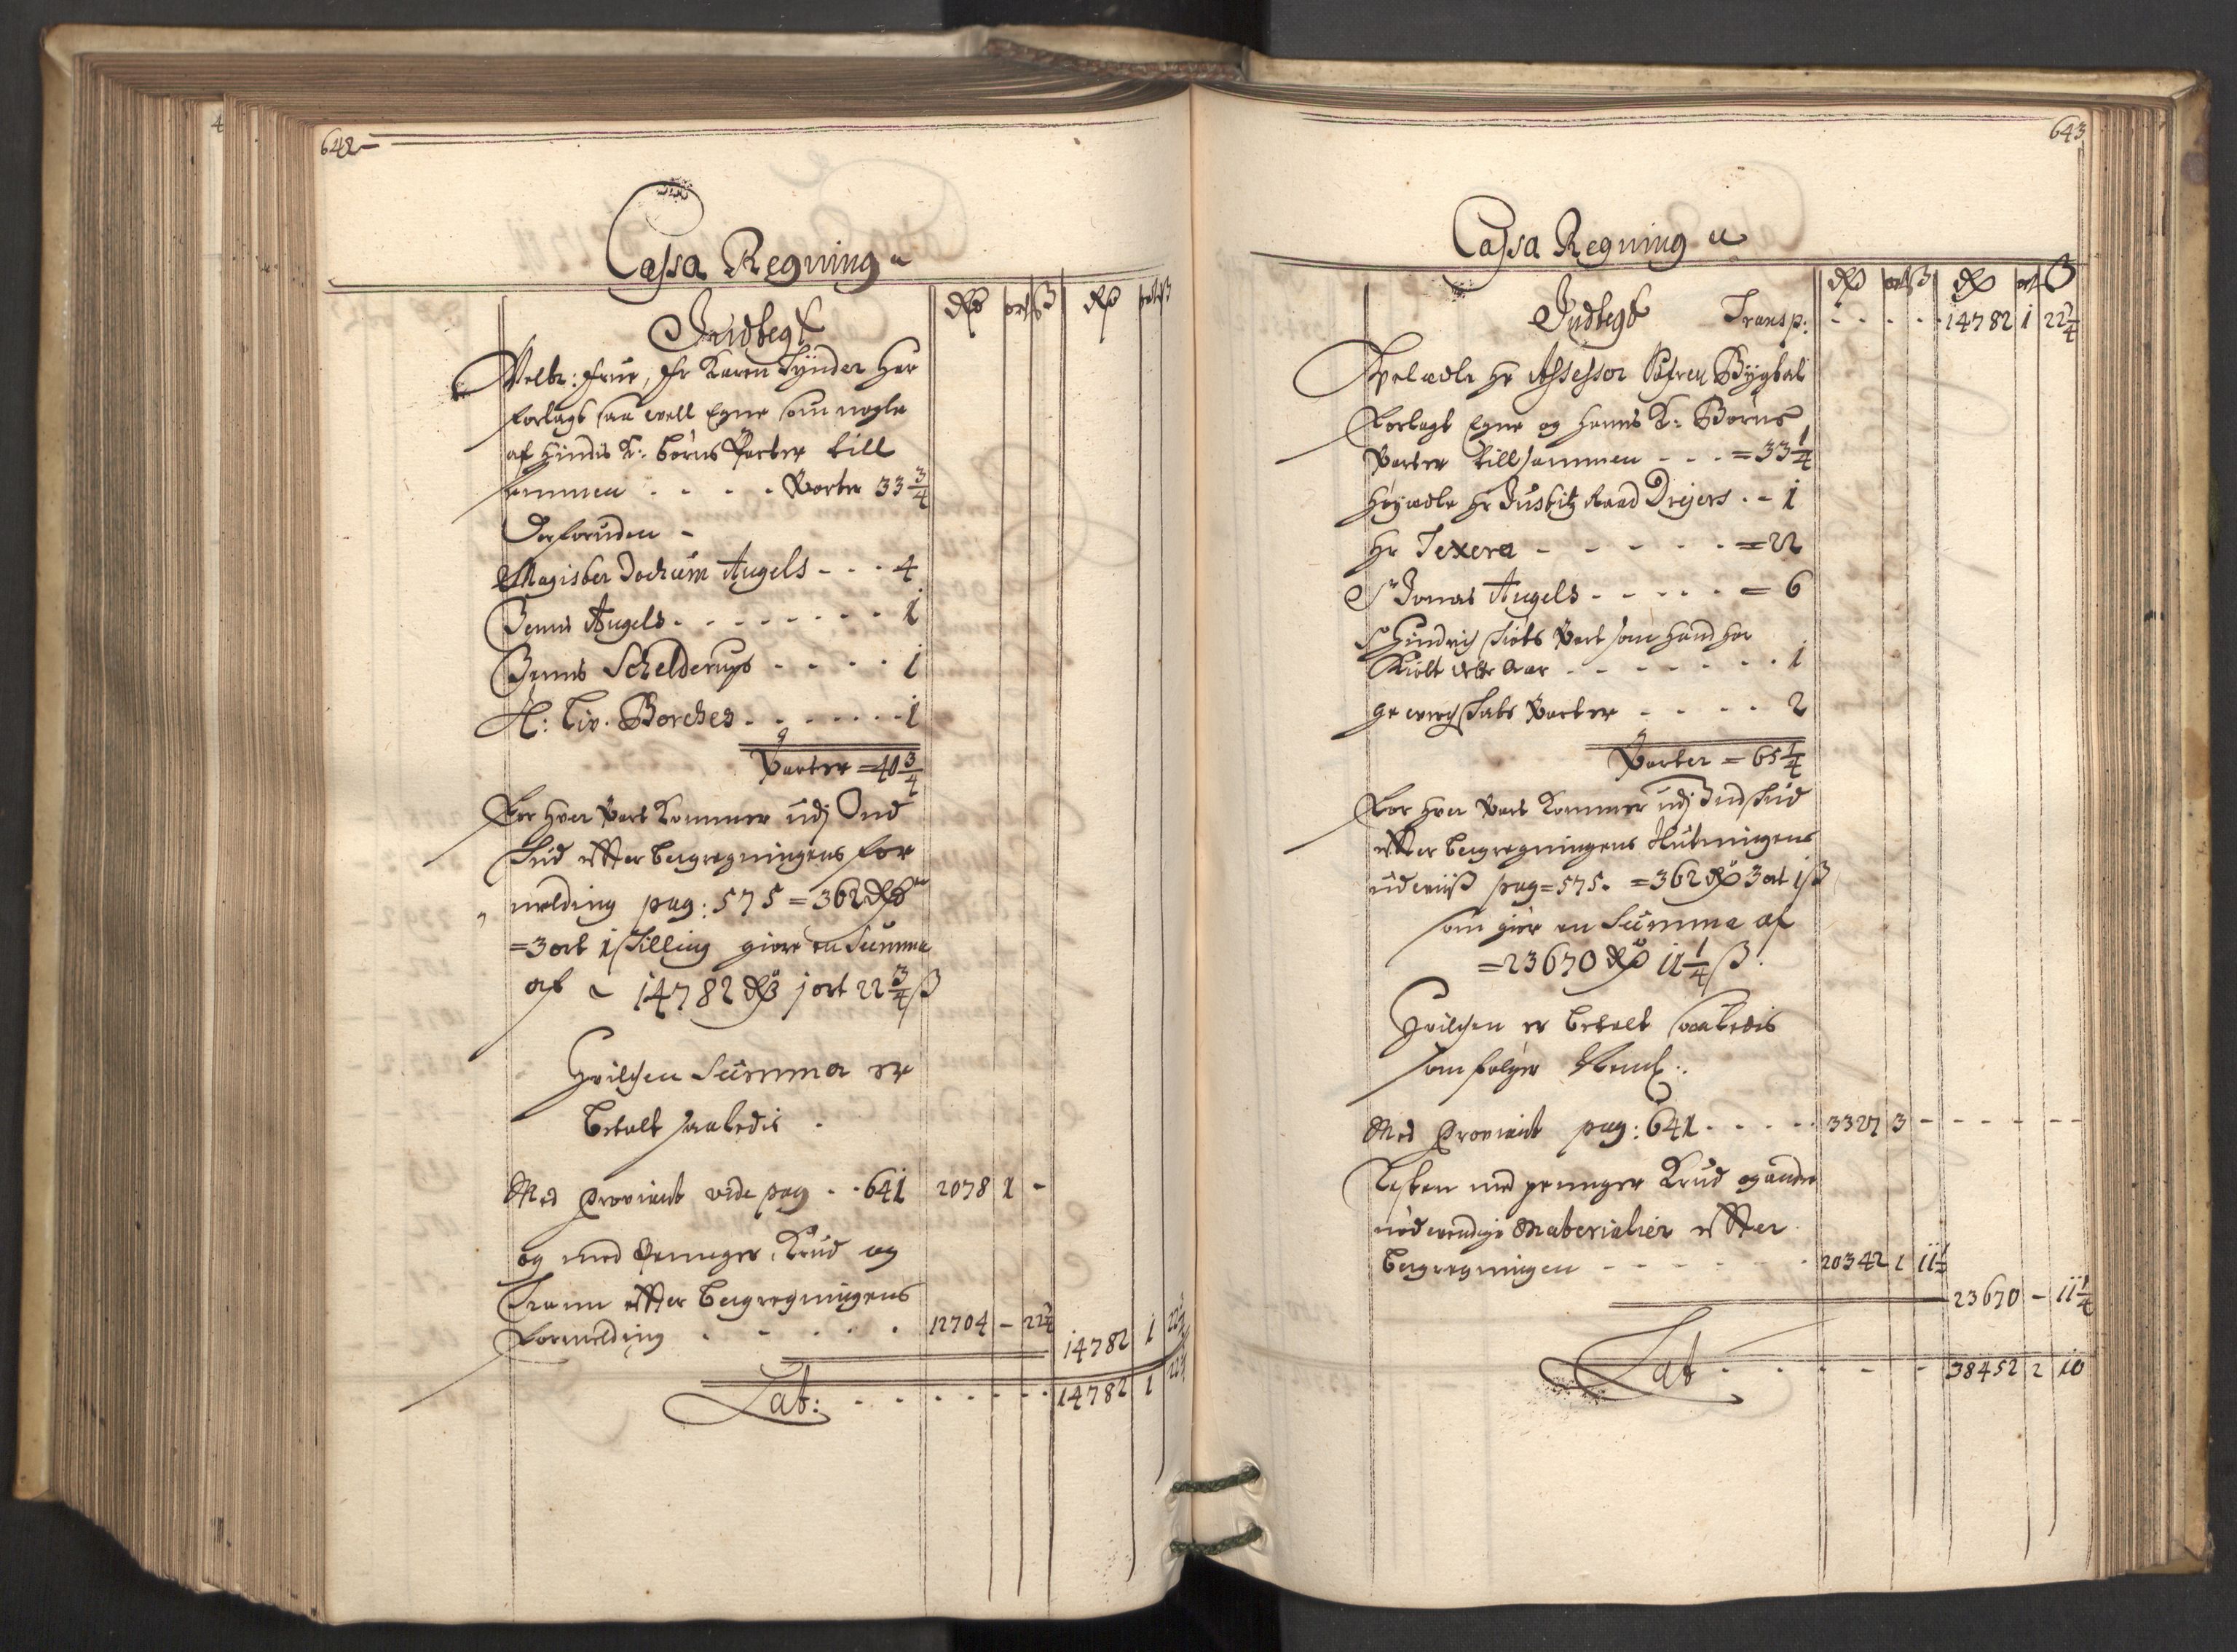 642
Cassa Regning
Rdr ort ß Rdr ort ß
Indtegt
Velb: Frue, Fr Karen Tynder har
forlagt saa well Egne som nogle
af hindis K: børns Parter till
sammen - - - - Parter 33 3/4
Desforuden -
Magister Jochum Angels - - - 4
Jens Angels - - - - - - - 1
Jens Schelderups - - - - 1
H: Liv. Borches - - - - - - 1
Parter = 40 3/4
For hver Part kommer udj Ind
skud effter bergregningens for
melding pag: 575 = 362 Rdr
= 3 ort 1 skilling giøre en Summa
af 14782 Rdr 1 ort 22 3/4 ß
Hvilchen Summa er
betalt saaledis
Med Proviant vide pag - - 641 2078 1 -
og med Penninger, Krud og
Trann effter bergregningens
formelding - - - - - 12704 - 22 3/4 14782 1 22 3/4
Lat: - - - - - - - 14782 1 22 3/4
643
Cassa Regning
Rdr ort ß Rdr ort ß
Indtegt Transp: - - - - 14782 1 22 3/4
Hr Assessor Søfren Bygbal
forlagt Egne og hans K: Børns
Parter tillsammen - - - = 33 1/4
Høyædle Hr Justitz Raad Drejers - - 1
Hr Texera - - - - - - = 22
Sr Jonas Angels - - - - - = 6
Sr Hindrich Part som hand har
Kiøbt dette Aar - - - - - - - 1
Parter - - - - 2
Parter = 65 1/4
For hver Part kommer udj Indskud
effter bergregningens Slutningens
udwiiß pag = 575. = 362 Rdr 3 ort 1 ß
som giør en Summa af
= 23670 Rdr 11 1/4 ß
Hvilchen er betalt saaledis
som følger Neml:
Med Proviant pag: 641 - - - - - 3327 3 - - - - - -
Resten med penninger Krud og andre
nødwendige Materialier effter
bergregningen - - - - - - 20342 1 11 1/4
23670 - 11 1/4
Lat - - - - - 38452 2 10